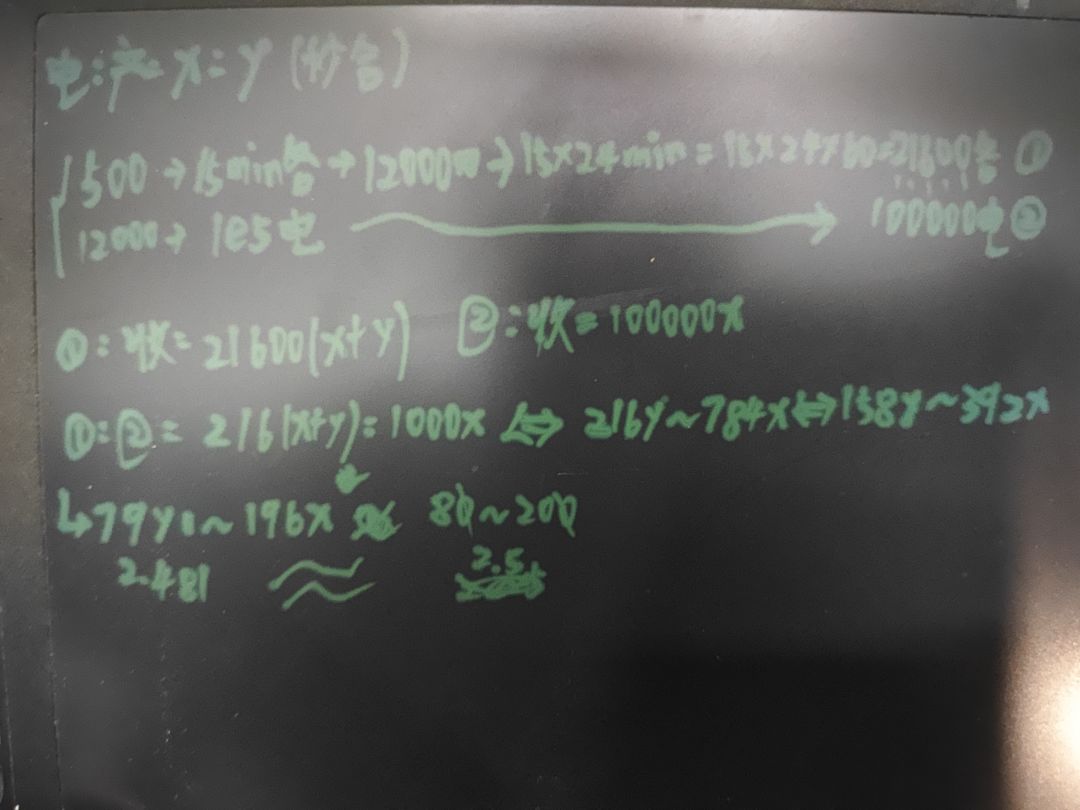 电:产 x : y (秒台)
1500 → 15min台 → 12000 → 15×24min = 15×24×60=21600台 ①
12000 → 1e5电 → 100000电 ②
①: 收= 21600(x+y) ②: 收=100000x
①=②= 216(x+y)=1000x ⇔ 216y~784x ⇔ 158y~392x
↳ 79y~196x 80~200
2.481 ≈ 2.5